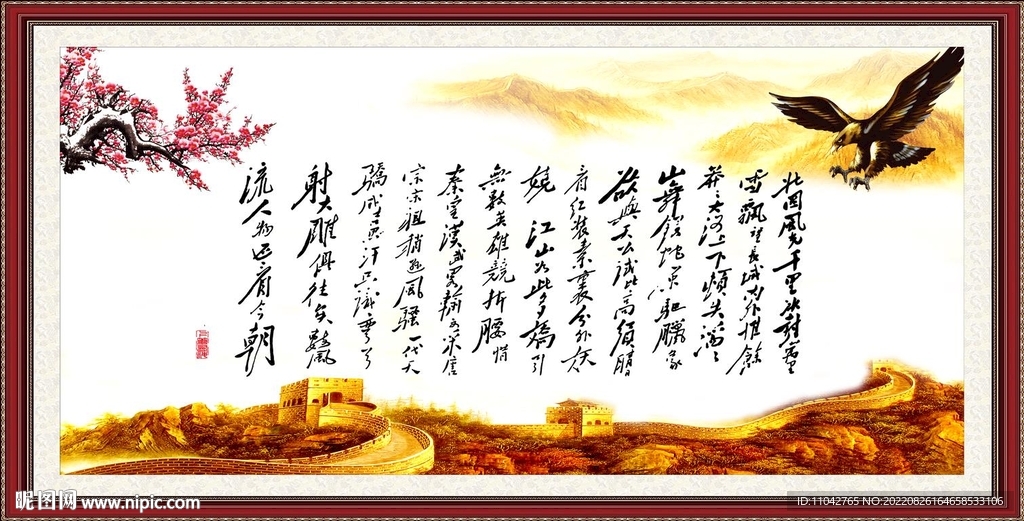 北国风光千里冰封万里
雪飘望长城内外惟馀
莽莽大河上下顿失滔滔
山舞银蛇原驰腊象
欲与天公试比高须晴
看红装素裹分外妖
娆 江山如此多娇引
無数英雄競折腰惜
秦皇漢武略输文采唐
宗宋祖稍逊风骚一代天
骄成吉思汗只識弯弓
射大雕俱往矣数风
流人物还看今朝
昵图网 www.nipic.com
ID:11042765 NO:20220826164658533106